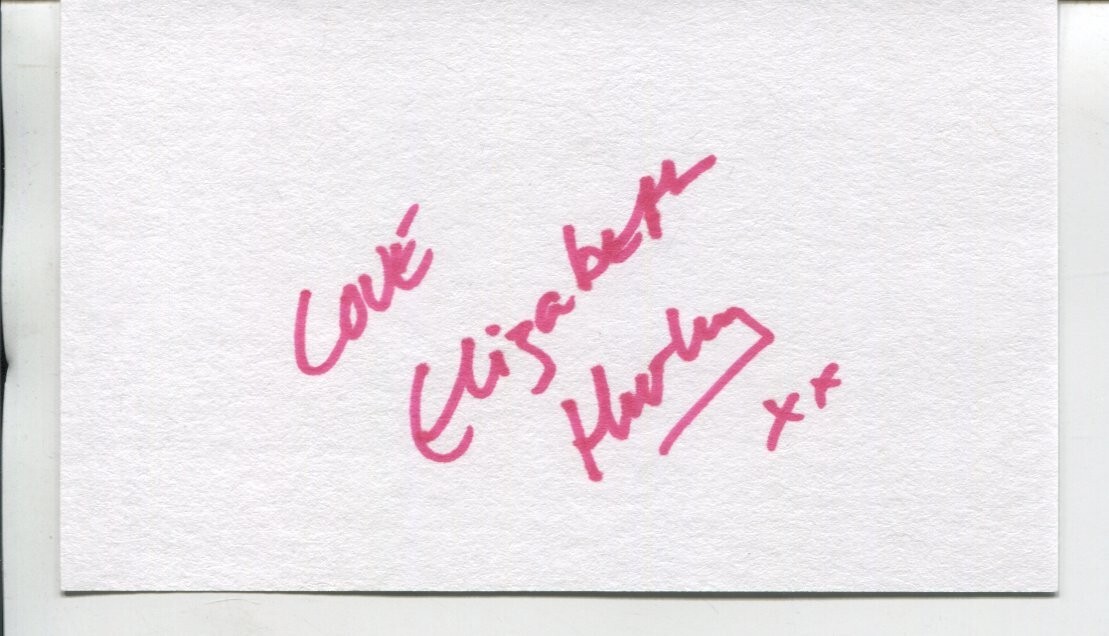 Love
Elizabeth
Hurley
xx